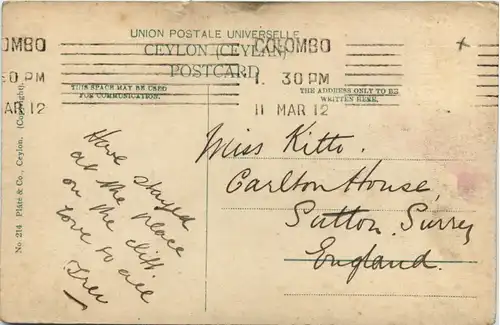 UNION POSTALE UNIVERSELLE
CEYLON (CEYLAN)
POSTCARD
OMBO
30 PM
AR 12
COLOMBO
1. 30 PM
11 MAR 12
THIS SPACE MAY BE USED
FOR COMMUNICATION.
THE ADDRESS ONLY TO BE
WRITTEN HERE.
No. 214 Plâté & Co., Ceylon. (Copyright).
Have stayed
at the place
on the cliff
Love to all
Miss Kitto.
Carlton House,
Sutton. Surrey
England.